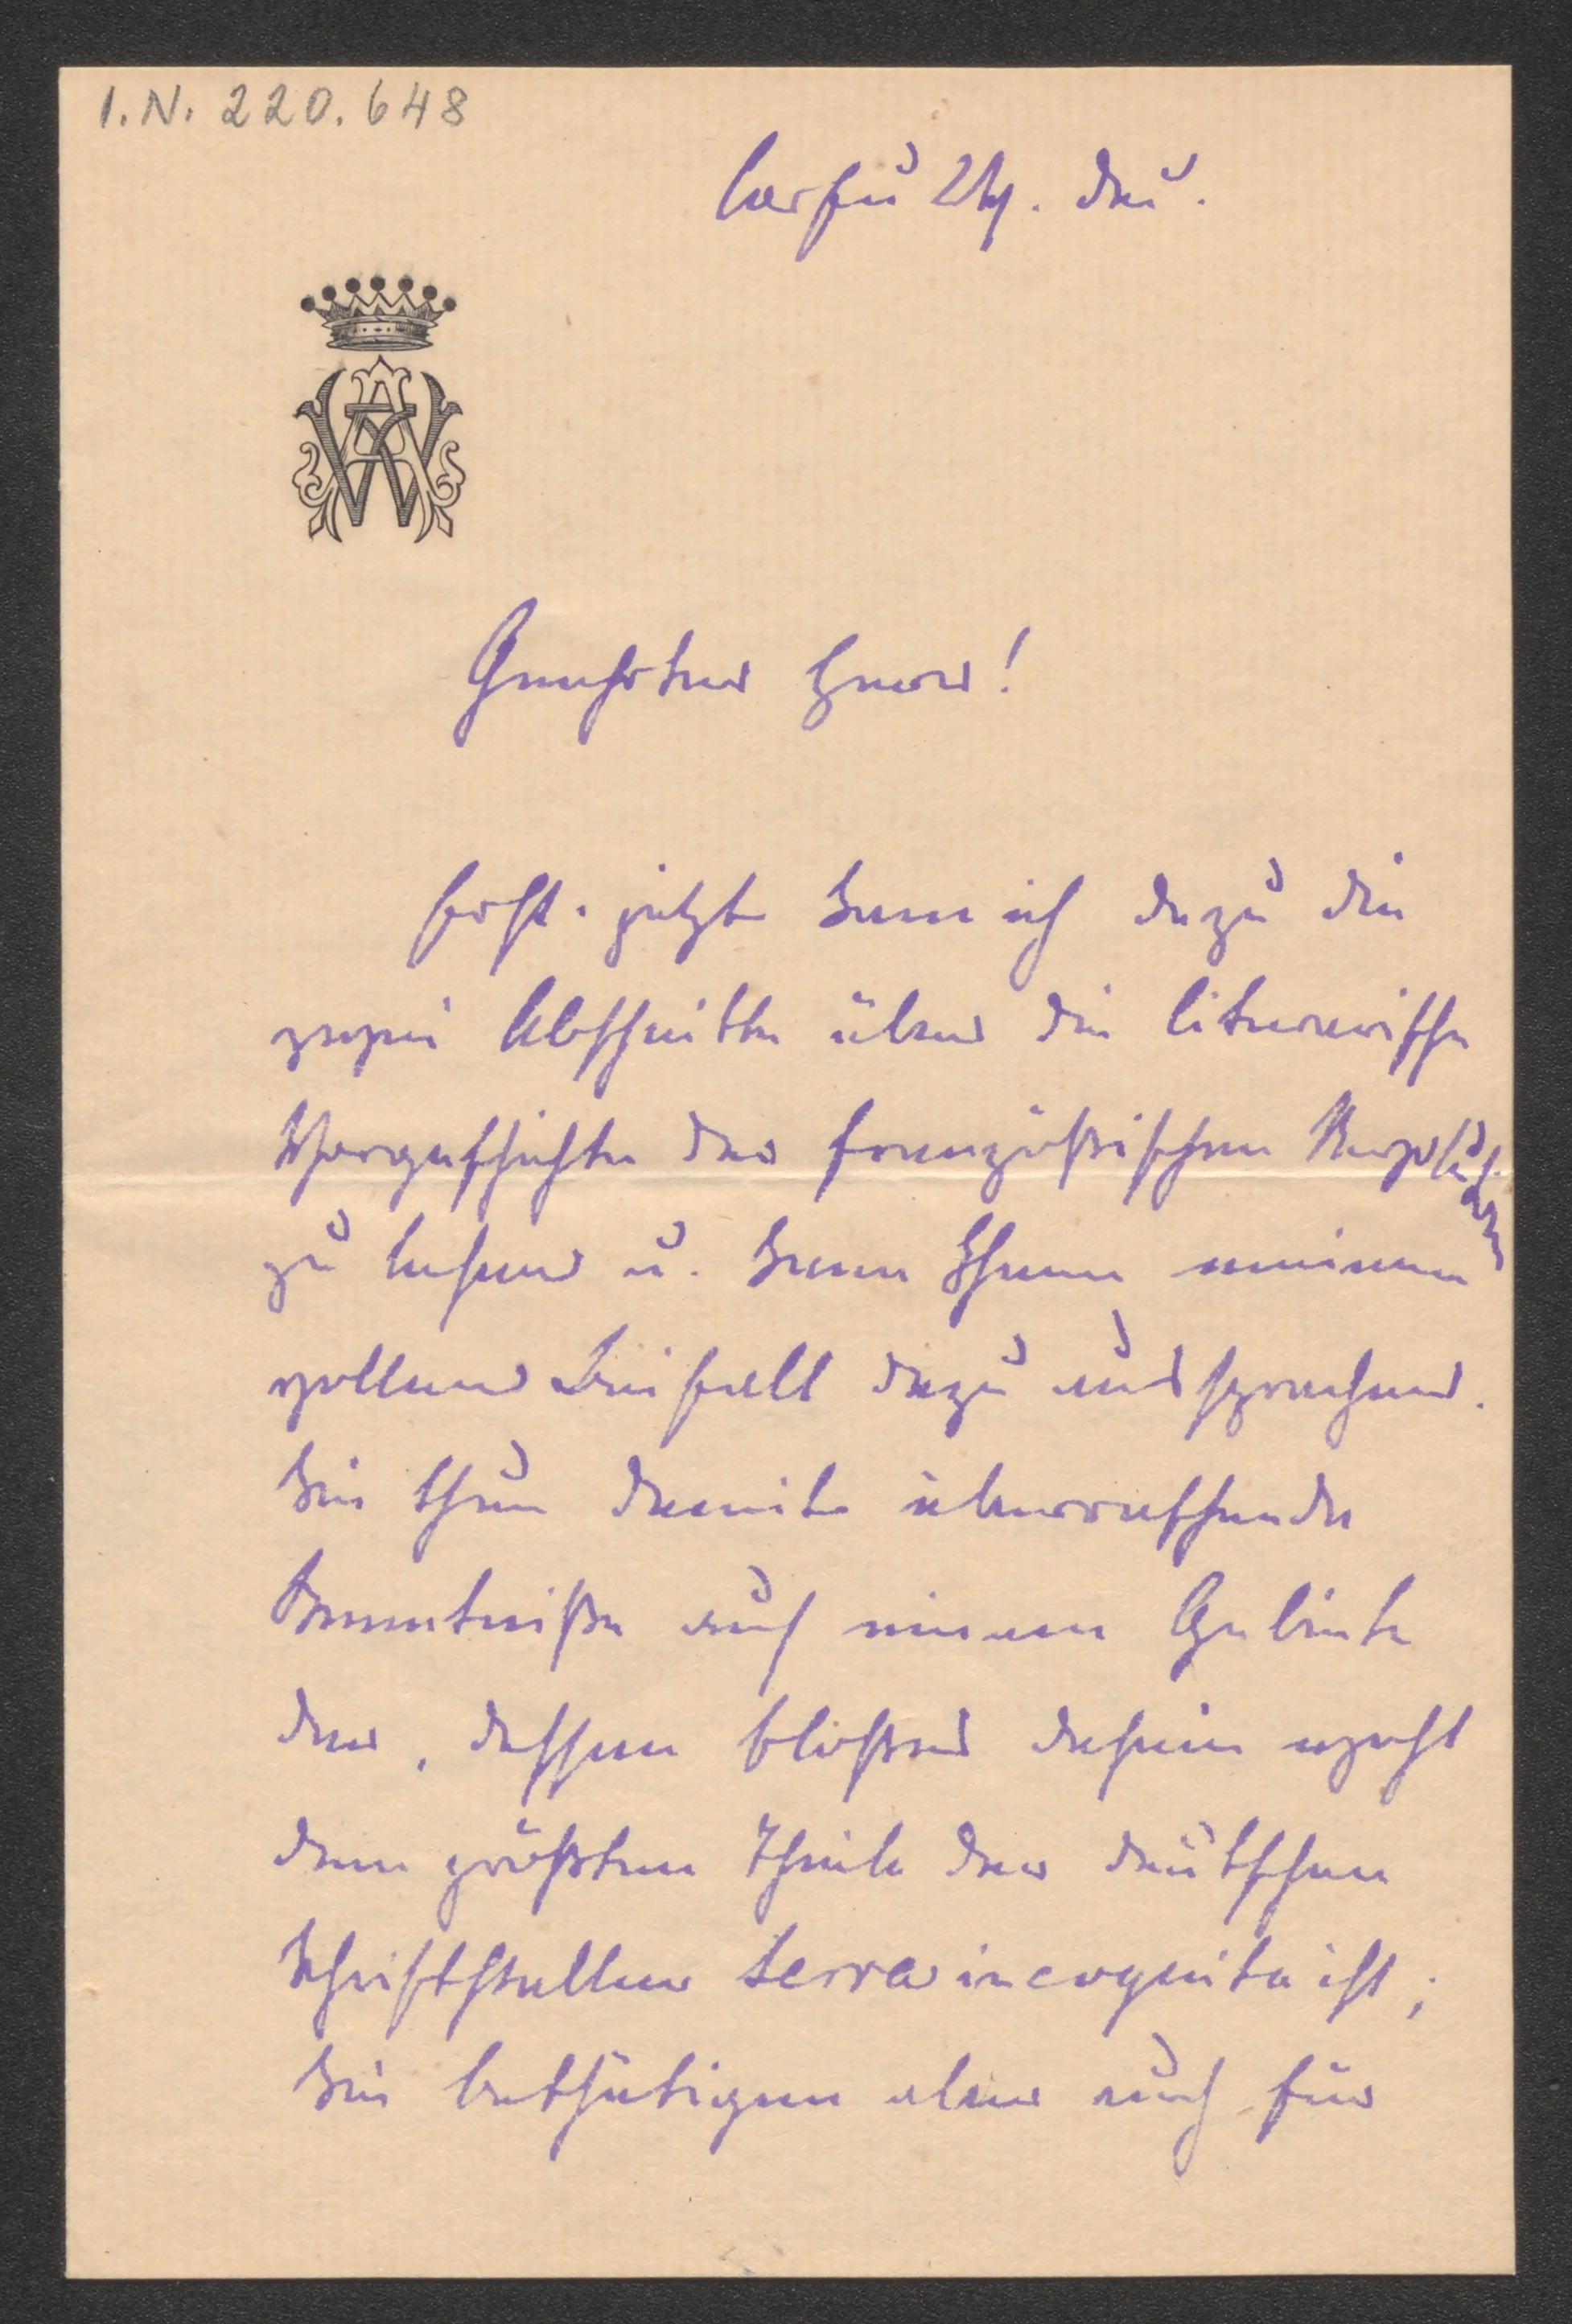 I.N. 220.648
Corfu 24. Dez.
AW
Geehrter Herr!
Erst jetzt kam ich dazu die
zwei Abschnitte über die literarische
Vorgeschichte der französischen Revolution
zu lesen u. kann Ihnen meinen
vollen Beifall dazu aussprechen.
Sie thun damit überraschende
Kenntniße auf einem Gebiete
dar, dessen bloßes dasein wohl
dem größten Theile der deutschen
Schriftsteller terra incognita ist;
Sie bethätigen aber auch für